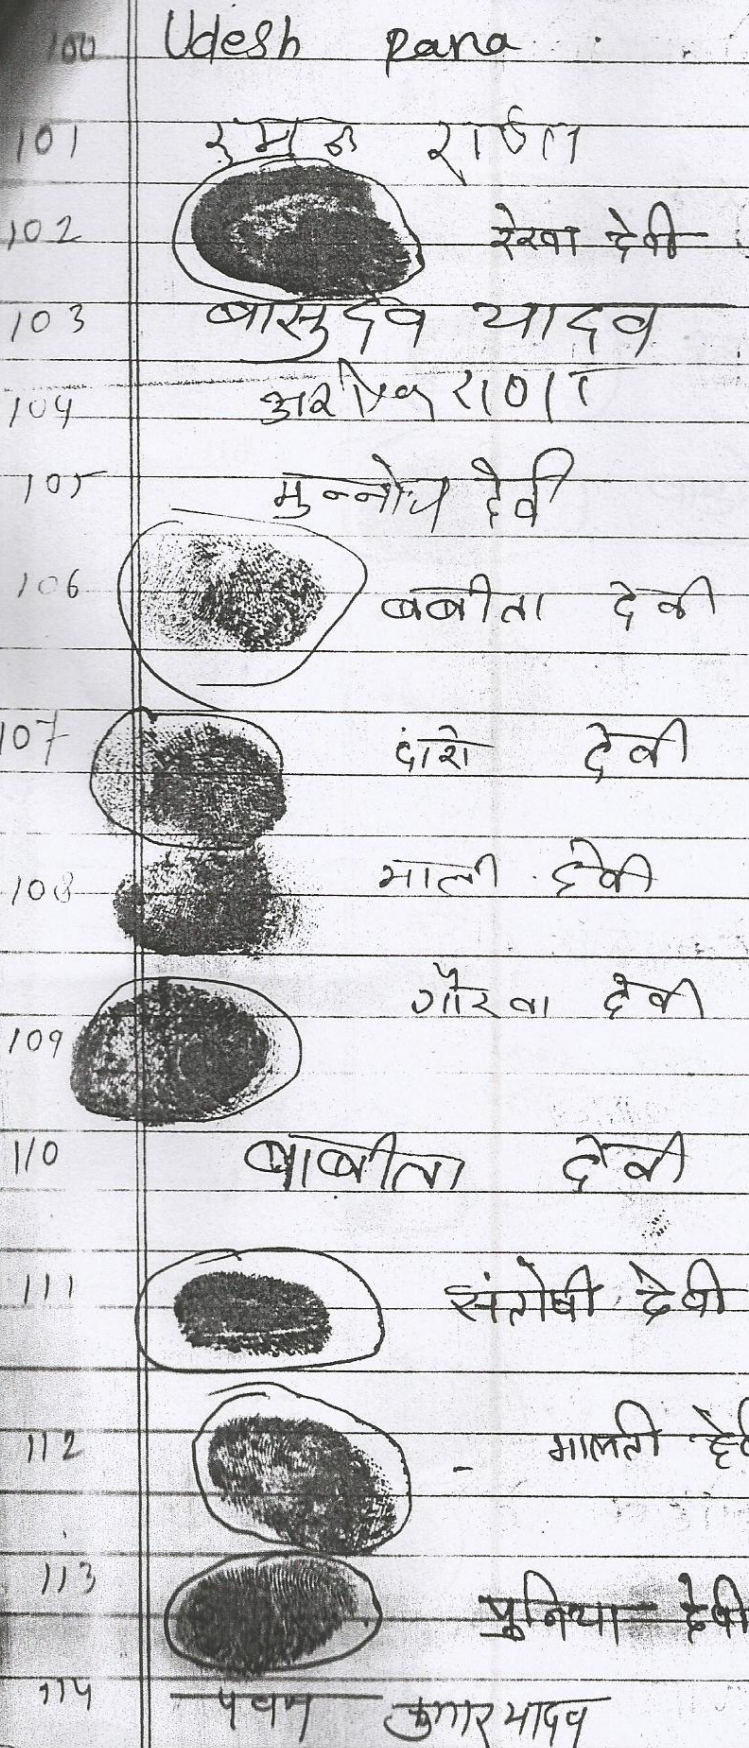 100 Udesh Rana
101
102 रेखा देवी
103 बासुदेव यादव
104 राणा
105 देवी
106 बबीता देवी
107 दांशो देवी
108 माली देवी
109 देवी
110 बाबीता देवी
111 संतोषी देवी
112 मालती
113 पुनिया देवी
114 पवन कुमार यादव